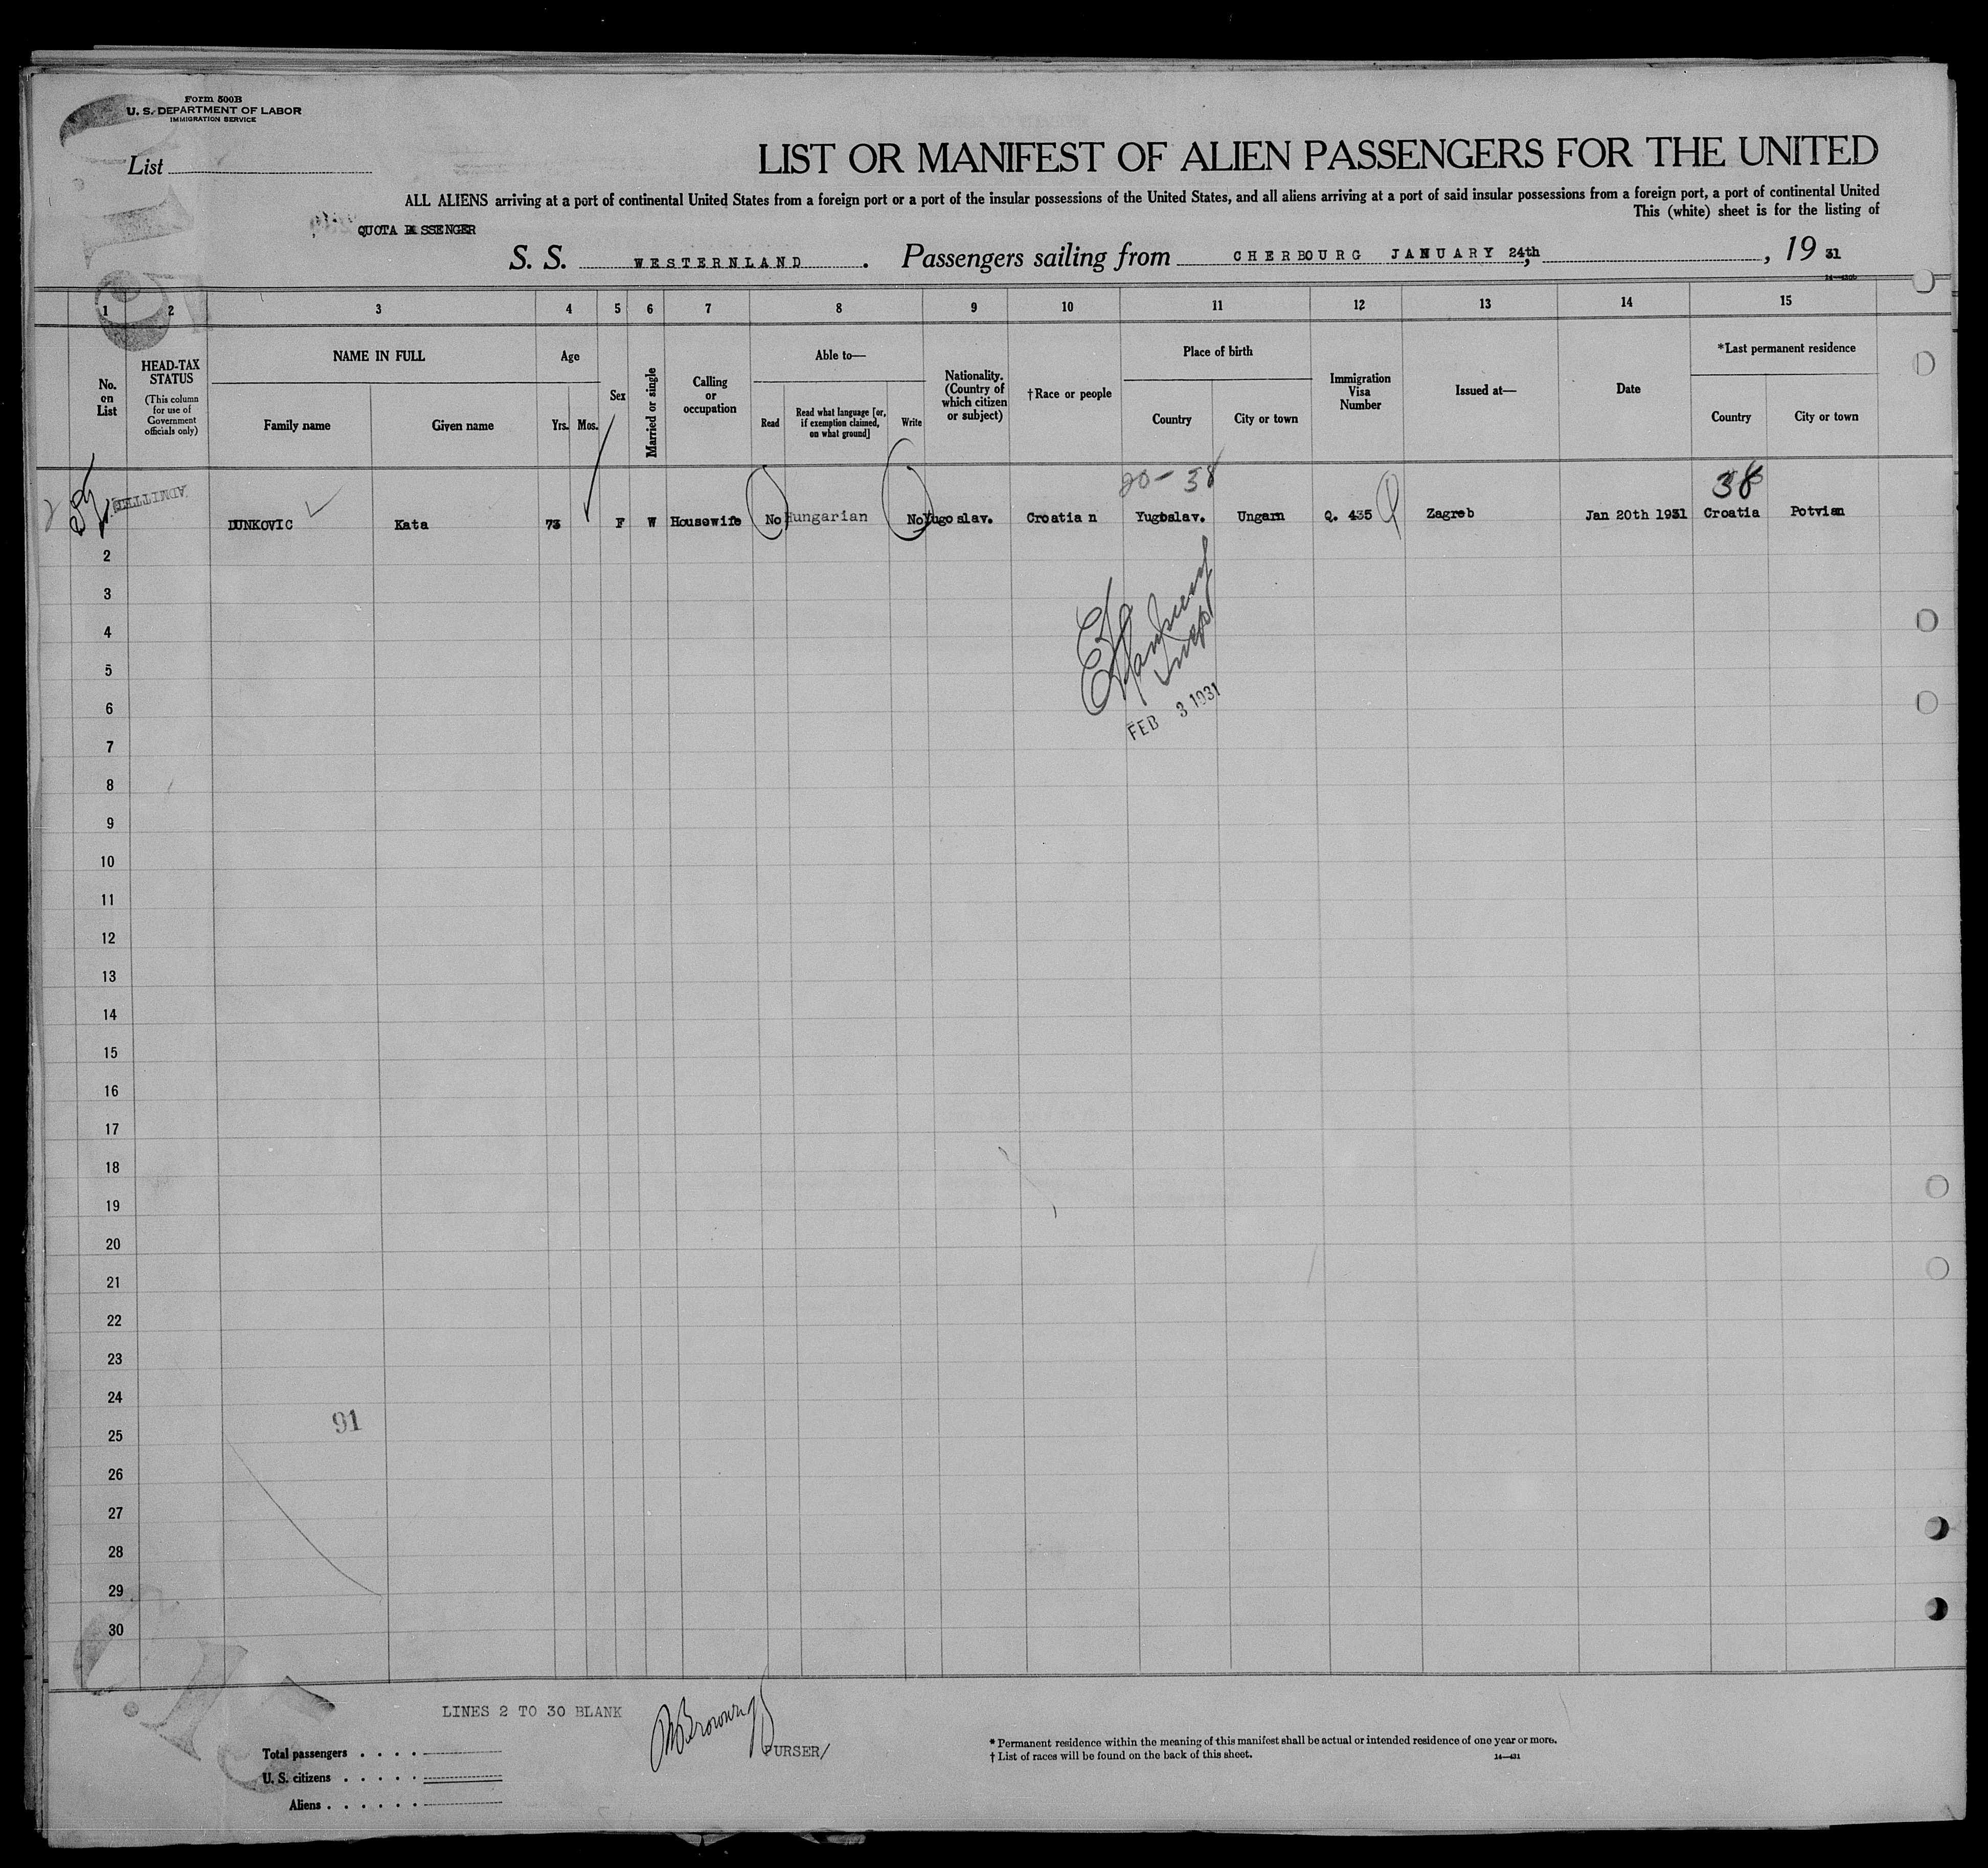 Form 500B
U. S. DEPARTMENT OF LABOR
IMMIGRATION SERVICE
List
LIST OR MANIFEST OF ALIEN PASSENGERS FOR THE UNITED
ALL ALIENS arriving at a port of continental United States from a foreign port or a port of the insular possessions of the United States, and all aliens arriving at a port of said insular possessions from a foreign port, a port of continental United
This (white) sheet is for the listing of
QUOTA PASSENGER
S. S. WESTERNLAND. Passengers sailing from CHERBOURG JANUARY 24th, , 19 31
1 2 3 4 5 6 7 8 9 10 11 12 13 14 15
No. on List
HEAD-TAX STATUS
(This column for use of Government officials only)
NAME IN FULL
Family name
Given name
Age
Yrs.
Mos.
Sex
Married or single
Calling or occupation
Able to—
Read
Read what language [or, if exemption claimed, on what ground]
Write
Nationality. (Country of which citizen or subject)
†Race or people
Place of birth
Country
City or town
Immigration Visa Number
Issued at—
Date
*Last permanent residence
Country
City or town
ADMITTED
20-38
38
DUNKOVIC Kata 73 F W Housewife No Hungarian No Yugoslav. Croatian Yugoslav. Ungarn Q. 435 Zagreb Jan 20th 1931 Croatia Potvian
2
3
4
5
6
FEB 3 1931
7
8
9
10
11
12
13
14
15
16
17
18
19
20
21
22
23
24
91
25
26
27
28
29
30
LINES 2 TO 30 BLANK
PURSER/
Total passengers
U. S. citizens
Aliens
* Permanent residence within the meaning of this manifest shall be actual or intended residence of one year or more.
† List of races will be found on the back of this sheet.
14—431